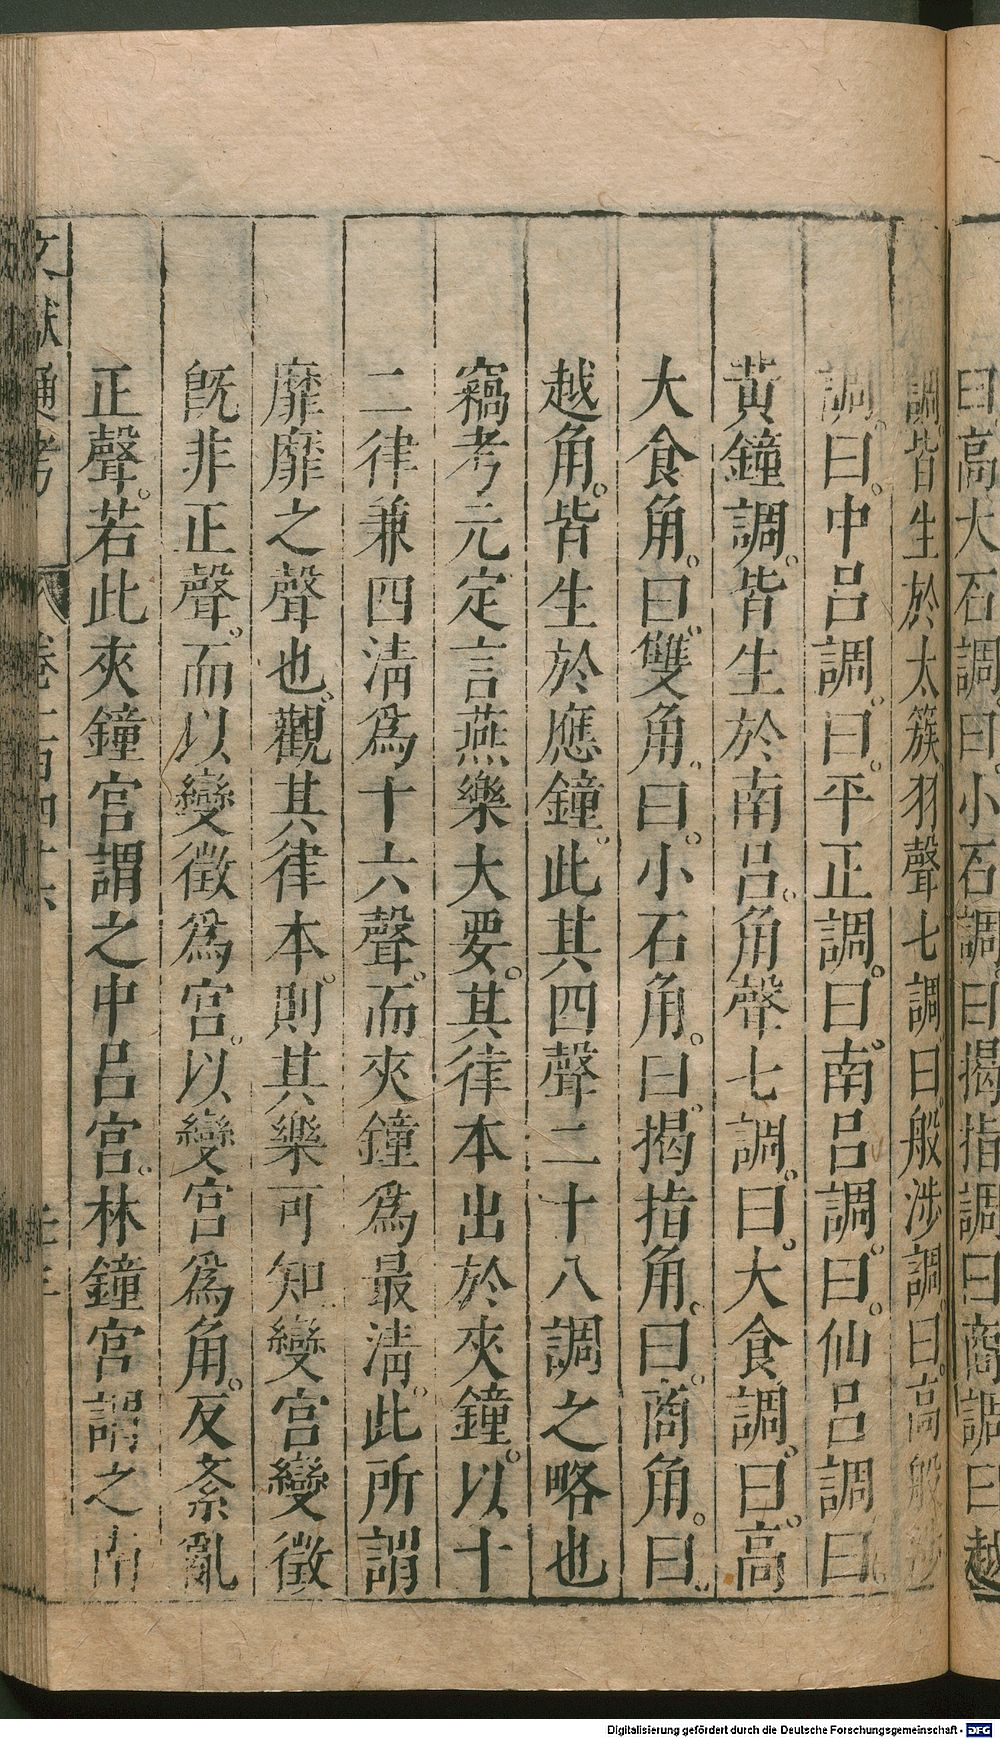 曰高大石調曰小石調曰揭指調曰商調曰越
調皆生於太簇羽聲七調曰般涉調曰高般涉
調曰中呂調曰平正調曰南呂調曰仙呂調曰
黃鐘調皆生於南呂角聲七調曰大食調曰高
大食角曰雙角曰小石角曰揭指角曰商角曰
越角皆生於應鐘此其四聲二十八調之略也
竊考元定言燕樂大要其律本出於夾鐘以十
二律兼四清為十六聲而夾鐘為最清此所謂
靡靡之聲也觀其律本則其樂可知變宮變徵
既非正聲而以變徵為宮以變宮為角反紊亂
正聲若此夾鐘宮謂之中呂宮林鐘宮謂之南
文獻通考 卷一百四十六
Digitalisierung gefördert durch die Deutsche Forschungsgemeinschaft - DFG